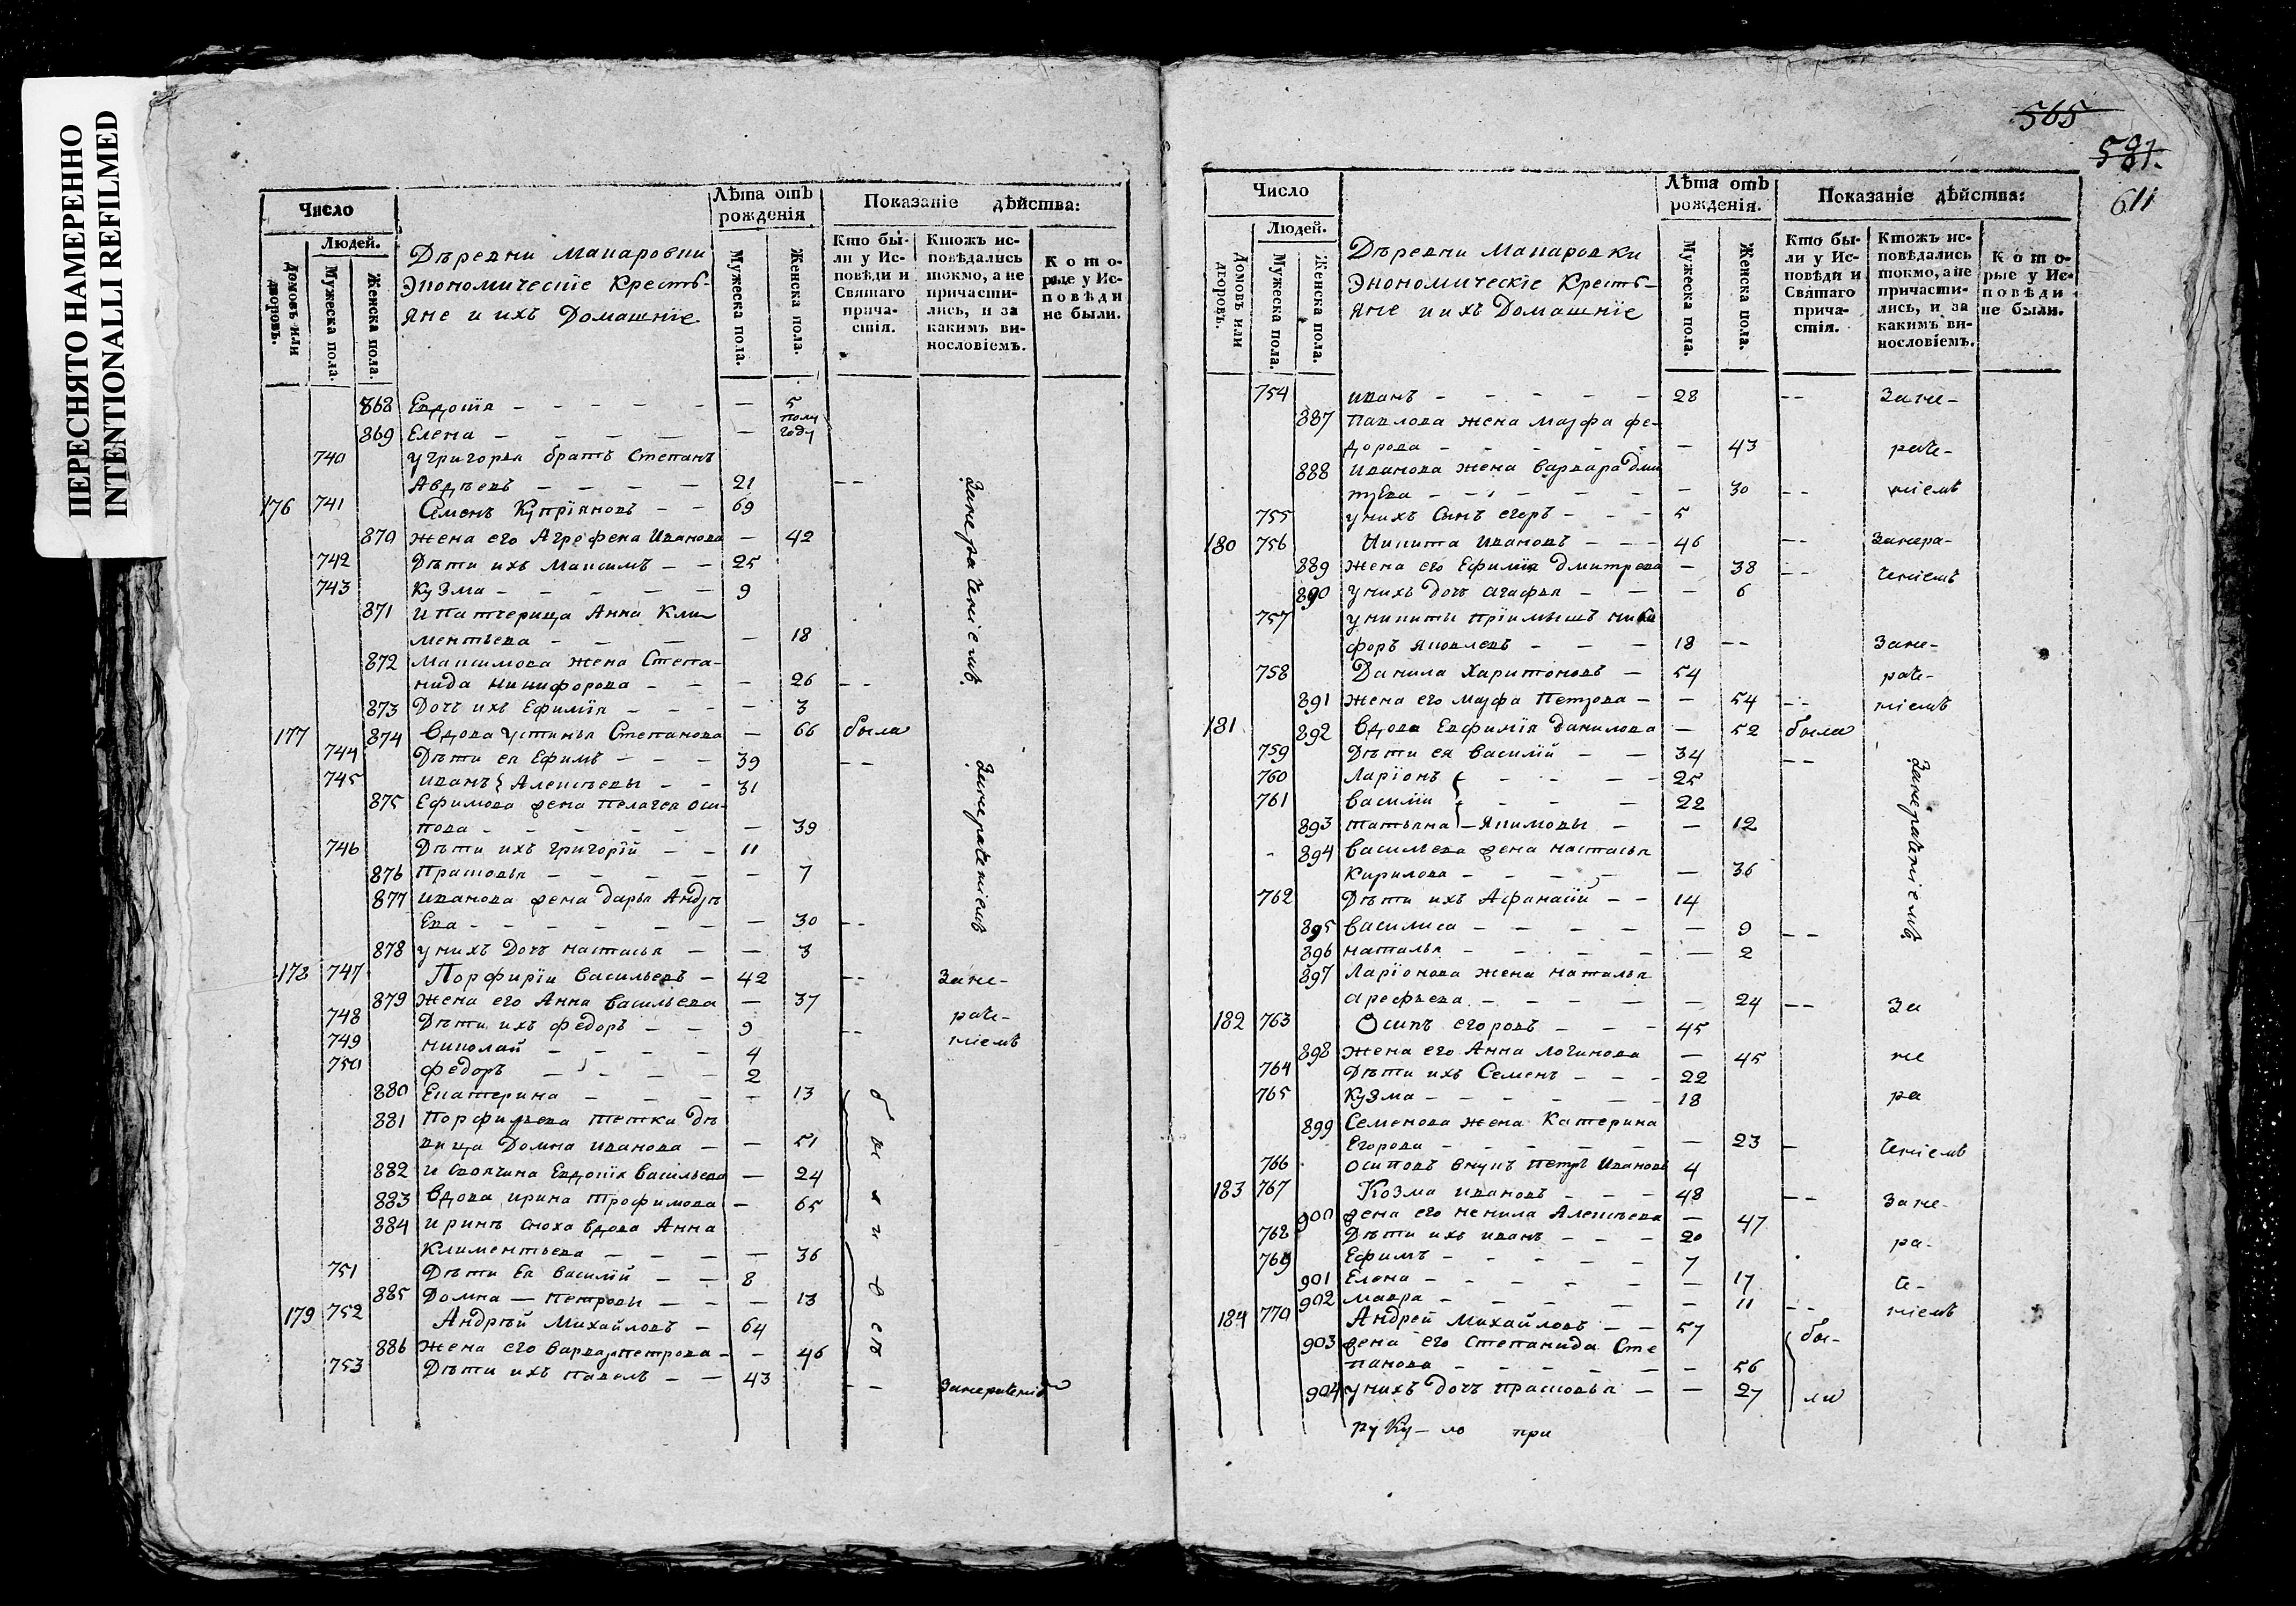 ПЕРЕСНЯТО НАМЕРЕННО
INTENTIONALLI REFILMED
Число
Людей.
Домовъ или дворовъ.
Мужеска пола.
Женска пола.
Деревни Макаровки
Экономическіе Кресть-
яне и ихъ Домашніе
Лѣта отъ рожденія
Мужеска пола.
Женска пола.
Показаніе дѣйства:
Кто бы-
ли у Ис-
повѣди и
Святаго
прича-
стія.
Ктожъ ис-
повѣдались
токмо, а не
причасти-
лись, и за
какимъ ви-
нословіемъ.
Кото-
рые у Ис-
повѣди
не были.
868 Евдокія – – – – – 5
869 Елена – – – – – полу году
740 у григорья братъ Степанъ
Авдѣевъ – – – – 21 – –
176 741 Семенъ Купріяновъ – – 69
870 жена его Агрефена Иванова – 42
742 Дѣти ихъ Максимъ – – 25
743 Кузма – – – – – 9
871 и Патчерица Анна Кли-
ментьева – – – – 18
872 максимова жена Степа-
нида никифорова – – – 26 – –
873 Дочь ихъ Ефимія – – – – 3
занераченіемъ
177 874 Вдова устинья Степанова – 66 была
744 Дѣти ея Ефимъ – – – 39 – –
745 иванъ} Алексѣевы – – 31
875 Ефимова жена пелагея оси-
пова – – – – – – 39
746 Дѣти ихъ григорій – – 11
876 прасковья – – – – – 7
877 иванова жена дарья Андрѣ
Ева – – – – – – – 30 – –
878 у нихъ Дочь настасья – – 3
занераченіемъ
178 747 Порфирій васильевъ – 42 – – зане-
879 жена его Анна васильева – 37
748 Дѣти ихъ федоръ – – 9 – – раче-
749 николай – – – – 4 ніемъ
750 федоръ – – – – 2
880 Екатерина – – – – 13
881 Порфирьева тетка дѣ
вица Домна иванова – – 51
882 и своячина Евдокія васильева – 24
883 вдова ирина трофимова – 65
884 иринѣ сноха вдова Анна
климентьева – – – – 36
751 Дѣти Ея василій – – 8
885 Домна – петровы – – – 13
179 752 Андрѣй Михайловъ – 64
886 жена его варвара петрова – – 46
753 Дѣти ихъ павелъ – – 43 – – занераченіемъ
565
591.
611
Число
Людей.
Домовъ или дворовъ.
Мужеска пола.
Женска пола.
Деревни Макаровки
Экономическіе Кресть-
яне и ихъ Домашніе
Лѣта отъ рожденія.
Мужеска пола.
Женска пола.
Показаніе дѣйства:
Кто бы-
ли у Ис-
повѣди и
Святаго
прича-
стія.
Ктожъ ис-
повѣдались
токмо, а не
причасти-
лись, и за
какимъ ви-
нословіемъ.
Кото-
рые у Ис-
повѣди
не были.
754 иванъ – – – – – 28 – – зане-
887 павлова жена марфа фе-
дорова – – – – – – 43 раче-
888 иванова жена варвара дми
трева – – – – – – 30 – – ніемъ
755 у нихъ сынъ егоръ – – – 5
180 756 Никита ивановъ – – – 46 – – занера-
889 жена его Ефимія дмитрева – 38 – – ченіемъ
890 у нихъ дочь агафья – – – 6
757 у никиты пріимышъ ники
форъ яковлевъ – – – 18 – – зане-
758 Данила харитоновъ – 54 раче-
891 жена его марфа петрова – – 54 – – ніемъ
181 892 вдова Евфимія данилова – 52 была
759 Дѣти ея василій – – 34 – –
760 Ларіонъ – – – – 25
761 василій – – – 22
893 татьяна – якимовы – – 12
894 васильева жена настасья
кирилова – – – – – 36
762 Дѣти ихъ Афанасій – – 14
895 василиса – – – – – 9 – –
896 наталья – – – – – 2
занераченіемъ
897 Ларіонова жена наталья
арефьева – – – – – 24 – – за
182 763 Осипъ егоровъ – – – 45
898 жена его Анна логинова – 45 не
764 Дѣти ихъ Семенъ – – – 22
765 кузма – – – – – – 18 ра
899 Семенова жена Катерина
Егорова – – – – – – 23 – ченіемъ
766 осиповъ внукъ петръ иванов 4
183 767 Козма ивановъ – – – 48 – – зане-
900 жена его ненила Алексѣева – 47
768 Дѣти ихъ иванъ – – – 20 ра-
769 Ефимъ – – – – – 7
901 Елена – – – – – – 17 че-
902 мавра – – – – – 11 – – ніемъ
184 770 Андрей Михайловъ – – 57
903 жена его Степанида Сте
панова – – – – – – 56 бы-
904 у нихъ дочь прасковья – – 27 ли